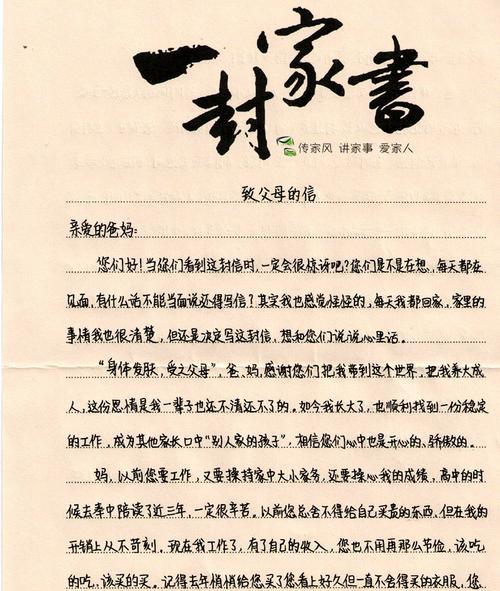 一封家書
传家风 讲家事 爱家人
致父母的信
亲爱的爸妈:
您们好!当您们看到这封信时,一定会很惊讶吧?您们是不是在想,每天都在
见面,有什么话不能当面说还得写信?其实我也感觉怪怪的,每天我都回家,家里的
事情我也很清楚,但还是决定写这封信,想和您们说说心里话。
“身体发肤,受之父母”,爸、妈,感谢您们把我带到这个世界,把我养大成
人,这份恩情是我一辈子也还不清还不了的。如今我长大了,也顺利找到一份稳定
的工作,成为其他家长口中“别人家的孩子”,相信您们心中也是开心的、骄傲的。
妈,以前您要工作,又要操持家中大小家务,还要操心我的成绩,高中的时
候去奉中陪读了近三年,一定很辛苦。以前您总舍不得给自己买贵的东西,但在我的
开销上从不苛刻。现在我工作了,有了自己的收入,您也不用再那么节俭,该吃
的吃,该买的买。记得去年悄悄给您买了您看上好久但一直不舍得买的衣服,您